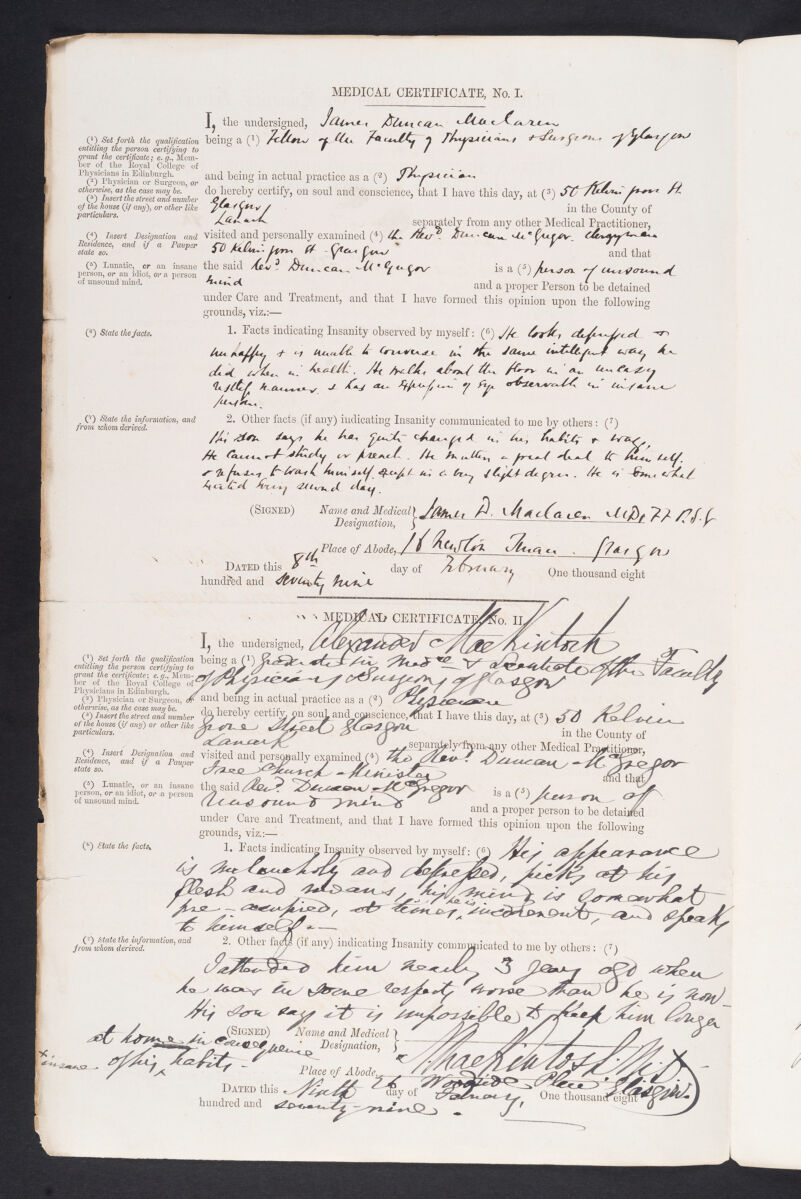 MEDICAL CERTIFICATE, No. I.
I, the undersigned, James Duncan Maclaren
(¹) Set forth the qualification entitling the person certifying to grant the certificate; e. g., Member of the Royal College of Physicians in Edinburgh.
being a (1) Fellow of the Faculty of Physicians & Surgeons of Glasgow
(²) Physician or Surgeon, or otherwise, as the case may be.
and being in actual practice as a (2) Physician
(³) Insert the street and number of the house (if any), or other like particulars.
do hereby certify, on soul and conscience, that I have this day, at (3) 50 Kelvin grove St.
Glasgow in the County of
Lanark separately from any other Medical Practitioner,
(⁴) Insert Designation and Residence, and if a Pauper state so.
visited and personally examined (4) the Revd. Duncan McGregor. Clergyman
50 Kelvin grove St Glasgow and that
(⁵) Lunatic, or an insane person, or an idiot, or a person of unsound mind.
the said Revd. Duncan McGregor is a (5) person of unsound
mind and a proper Person to be detained
under Care and Treatment, and that I have formed this opinion upon the following
grounds, viz.:—
(⁶) State the facts.
1. Facts indicating Insanity observed by myself: (6) He looks depressed &
unhappy & is unable to converse in the same intelligent way he
did when in health. He walks about the floor in an uneasy
restless manner & has an expression of eye observable in insane
persons.
(⁷) State the information, and from whom derived.
2. Other facts (if any) indicating Insanity communicated to me by others: (7)
His son says he has quite changed in his habits & ways,
He cannot study or preach. He mutters a great deal to himself,
& refuses to wash himself except in a very slight degree. He is somewhat
excited every second day.
(SIGNED) Name and Medical Designation, James D. Maclaren M.D., F.F.P.S.G
Place of Abode, Newton Terrace. Glasgow
DATED this 8th day of February One thousand eight
hundred and seventy nine
MEDICAL CERTIFICATE, No. II.
I, the undersigned, Alexander MacKintosh
(¹) Set forth the qualification entitling the person certifying to grant the certificate; e. g., Member of the Royal College of Physicians in Edinburgh.
being a (1) Graduate in Medne & Licentiate of the Faculty
of Physicians & Surgeons of Glasgow
(²) Physician or Surgeon, or otherwise, as the case may be.
and being in actual practice as a (2) Physician
(³) Insert the street and number of the house (if any) or other like particulars.
do hereby certify, on soul and conscience, that I have this day, at (3) 50 Kelvin
grove Street Glasgow in the County of
Lanark separately from any other Medical Practitioner,
(⁴) Insert Designation and Residence, and if a Pauper state so.
visited and personally examined (4) the Revd. Duncan McGregor
Free Church Minister and that
(⁵) Lunatic, or an insane person, or an idiot, or a person of unsound mind.
the said Revd. Duncan McGregor is a (5) person of
Unsound mind and a proper person to be detained
under Care and Treatment, and that I have formed this opinion upon the following
grounds, viz.:—
(⁶) State the facts.
1. Facts indicating Insanity observed by myself: (6) His appearance
is melancholy and depressed, picks at his
flesh and moans, his mind is somewhat
pre-occupied, at times, he is incoherent, and speaks
to himself.—
(⁷) State the information, and from whom derived.
2. Other facts (if any) indicating Insanity communicated to me by others: (7)
I attended him nearly 3 years ago when
he was in some respects worse than he is now—
His son says it is impossible to keep him longer
at home in consequence
of his insane habits.
(SIGNED) Name and Medical Designation, A. MacKintosh. M.D.
Place of Abode, 26 Woodside Place Glasgow.
DATED this Ninth day of February, One thousand eight
hundred and seventy-nine.